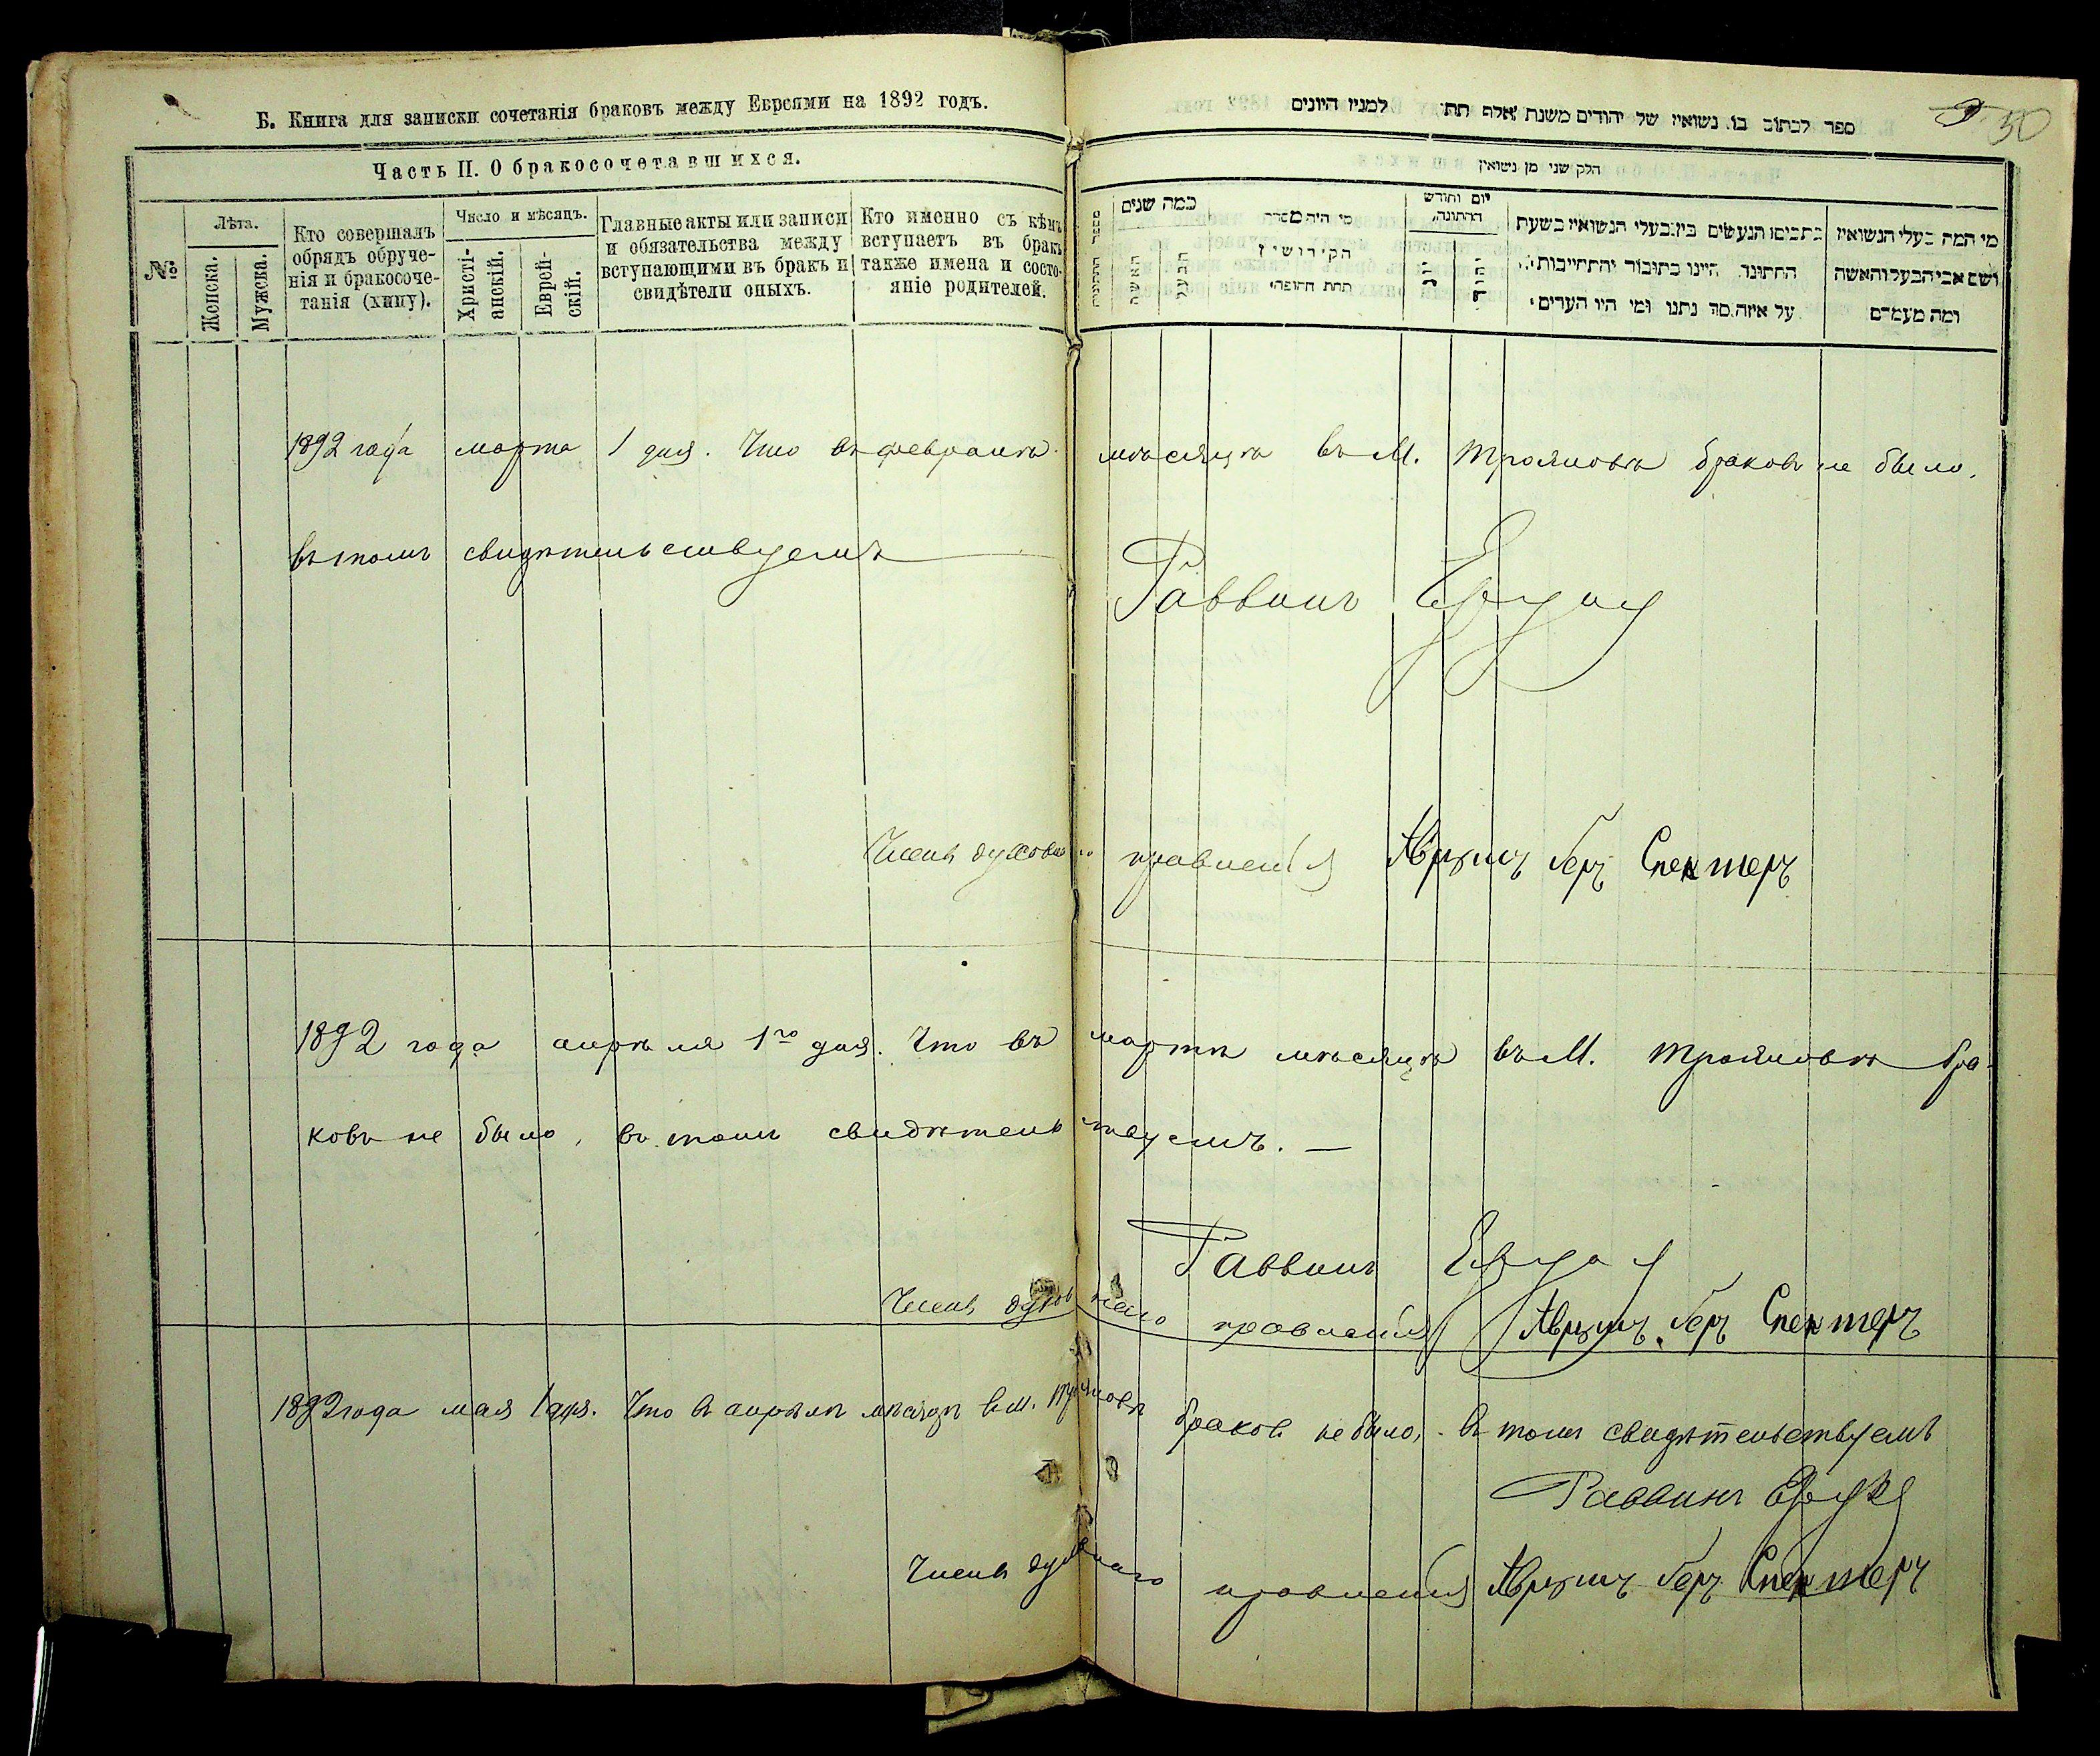 Б. Книга для записки сочетанія браковъ между Евреями на 1892 годъ.
Часть II. О бракосочетавшихся.
№
Лѣта.
Женска.
Мужска.
Кто совершалъ
обрядъ обруче-
нія и бракосоче-
танія (хипу).
Число и мѣсяцъ.
Христі-
анскій.
Еврей-
скій.
Главные акты или записи
и обязательства между
вступающими въ бракъ и
свидѣтели оныхъ.
Кто именно съ кѣмъ
вступаетъ въ бракъ
также имена и состо-
яніе родителей.
ספר לכתוב בו נשואין של יהודים משנת אלף תת למנין היונים
50
חלק שני מן נשואין
כמה שנים
האשה
הבעל
מי היה מסדר
הקידושין
תחת החופה
יום וחודש
החתונה
בכתבים הנעשים בין בעלי הנשואין בשעת
החתונה היינו כתובור והתחייבות
על איזה סך נתנו ומי היו העדים
מי המה בעלי הנשואין
ושם אבי הבעל והאשה
ומה מעמדם
1892 года марта 1 дня. Что въ февралѣ мѣсяцѣ въ М. Трояновкѣ браковъ не было,
въ томъ свидѣтельствуемъ
Раввинъ
Членъ духовнаго правленія Аврумъ Беръ Спекторъ
1892 года апрѣля 1го дня. Что въ мартѣ мѣсяцѣ въ М. Трояновкѣ бра-
ковъ не было, въ томъ свидѣтельствуемъ. —
Раввинъ
Членъ духовнаго правленія Аврумъ Беръ Спекторъ
1892 года мая 1 дня. Что въ апрѣлѣ мѣсяцѣ въ М. Трояновкѣ браковъ не было, въ томъ свидѣтельствуемъ
Раввинъ
Членъ духовнаго правленія Аврумъ Беръ Спекторъ